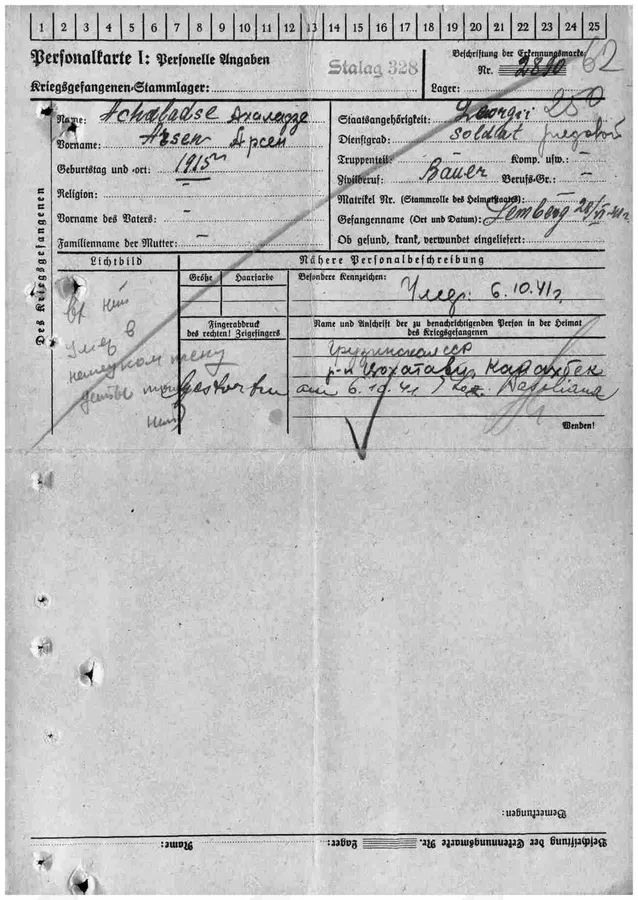 1 2 3 4 5 6 7 8 9 10 11 12 13 14 15 16 17 18 19 20 21 22 23 24 25
Personalkarte I: Personelle Angaben
Kriegsgefangenen-Stammlager:
Stalag 328
Beschriftung der Erkennungsmarke
Nr. 2890 62
Lager:
250
Des Kriegsgefangenen
Name: Achaladse Ахаладзе
Vorname: Arsen Арсен
Geburtstag und -ort: 1915
Religion: –
Vorname des Vaters: –
Familienname der Mutter: –
Staatsangehörigkeit: Georgii
Dienstgrad: Soldat рядовой
Truppenteil: – Komp. usw.: –
Zivilberuf: Bauer Berufs-Gr.: –
Matrikel Nr. (Stammrolle des Heimatstaates): –
Gefangenname (Ort und Datum): Lemberg
Ob gesund, krank, verwundet eingeliefert: –
Lichtbild
Nähere Personalbeschreibung
Größe Haarfarbe
Besondere Kennzeichen:
Умер. 6.10.41г
Fingerabdruck
des rechten! Zeigefingers
Name und Anschrift der zu benachrichtigenden Person in der Heimat
des Kriegsgefangenen
Грузинская сср
р-н Цохатаву
Умер в
немецком плену
Gestorben am 6.10.41
Wenden!
Bemerkungen:
Beschriftung der Erkennungsmarke Nr. Lager: Name: